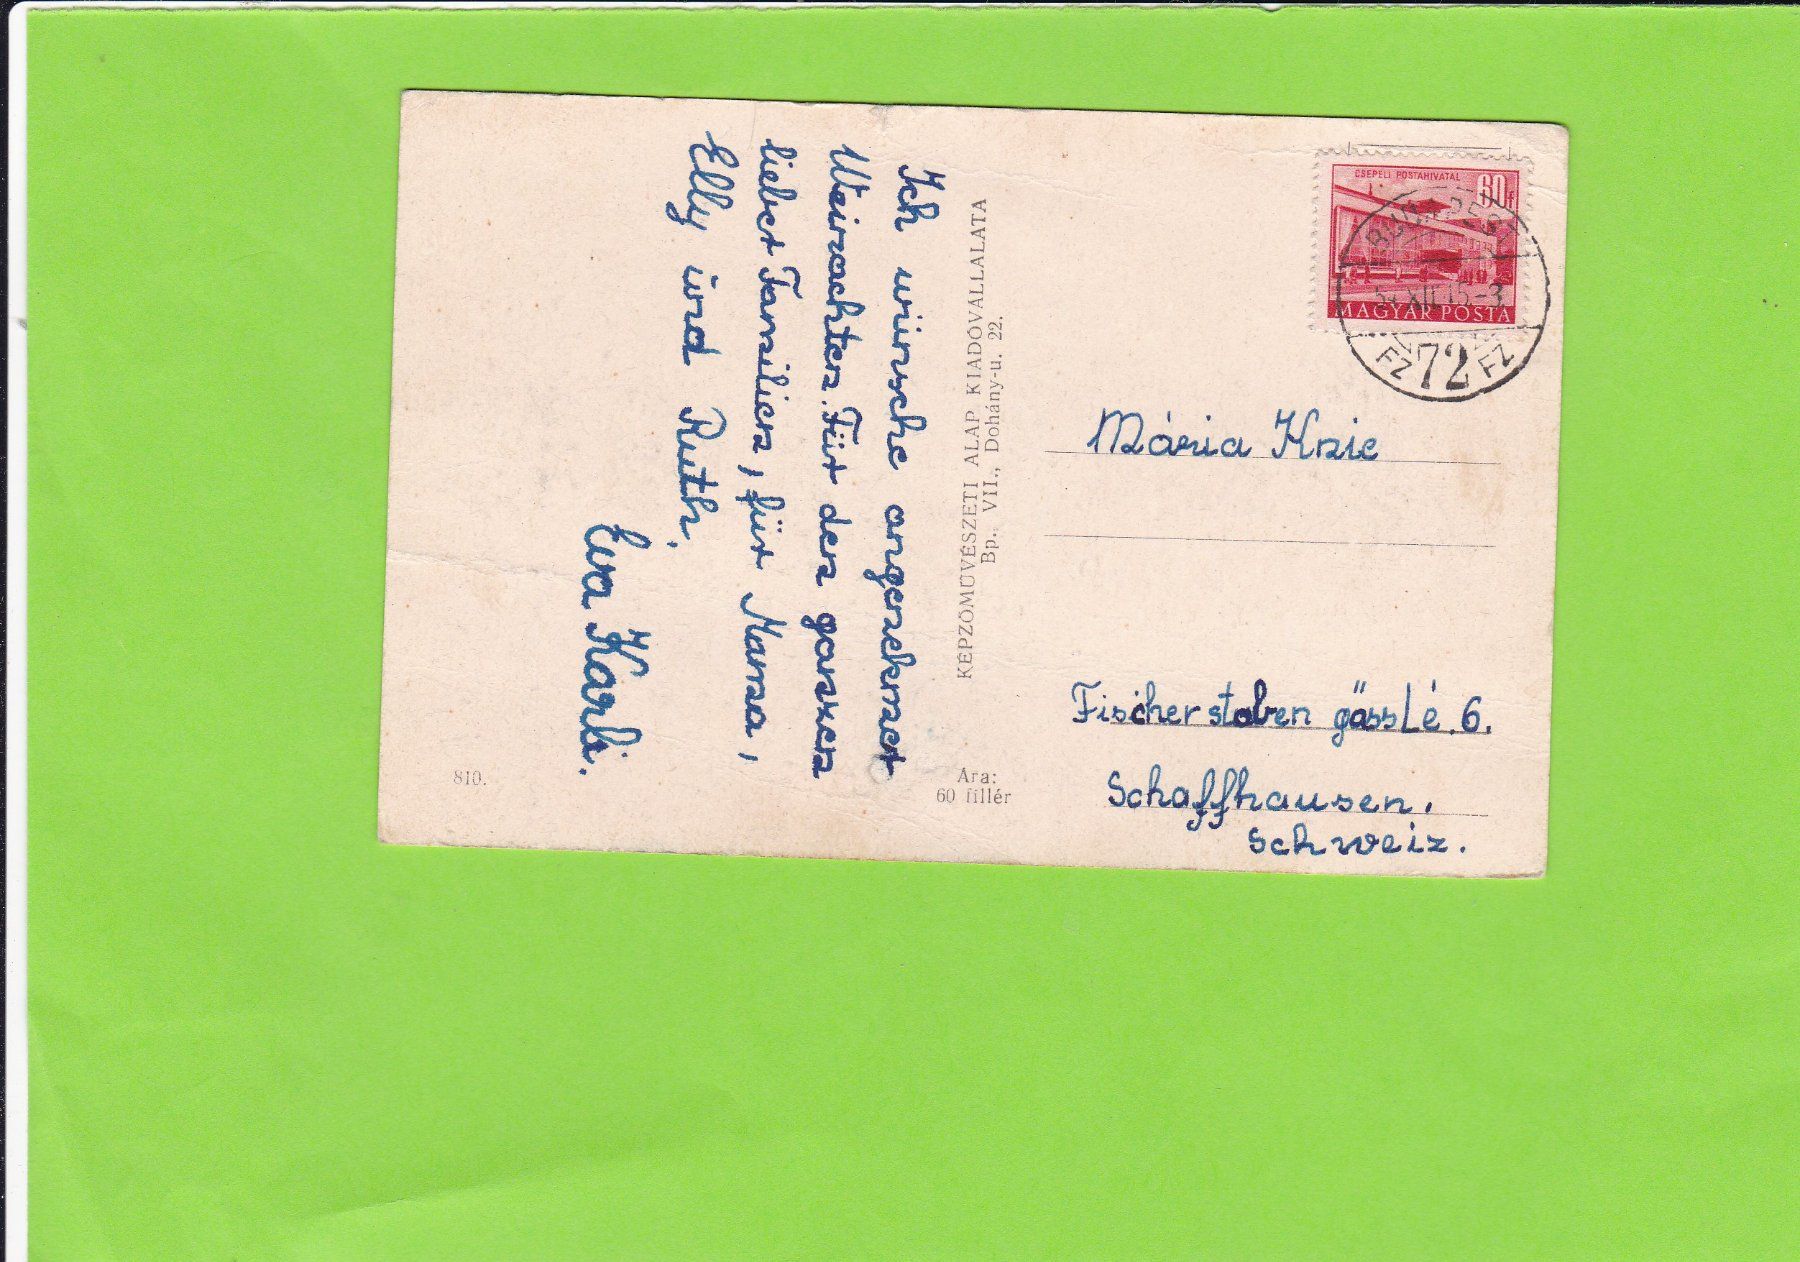 Ich wünsche angenehmet
Weinachten. Für den ganzen
liebet Familien, für Mama,
Elly und Ruth.
Eva Karli.
810.
KÉPZŐMŰVÉSZETI ALAP KIADÓVÁLLALATA
Bp., VII., Dohány-u. 22.
Ára:
60 fillér
CSEPELI POSTAHIVATAL
60f
MAGYAR POSTA
BUDAPEST
XII.15.-3
FZ 72 FZ
Mária
Fischerstaben gässLé.6.
Schaffhausen.
Schweiz.